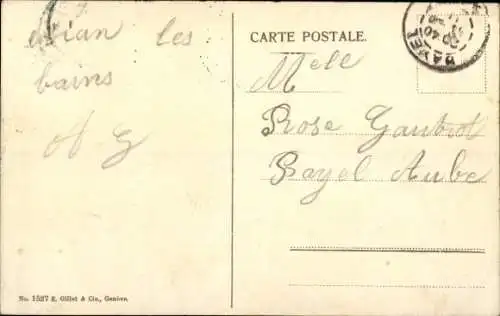 evian les
bains
A G
CARTE POSTALE.
Mell
Rose Gaubrot
Bayel Aube
BAYEL
No. 1527 E. Gillet & Cie., Genève.